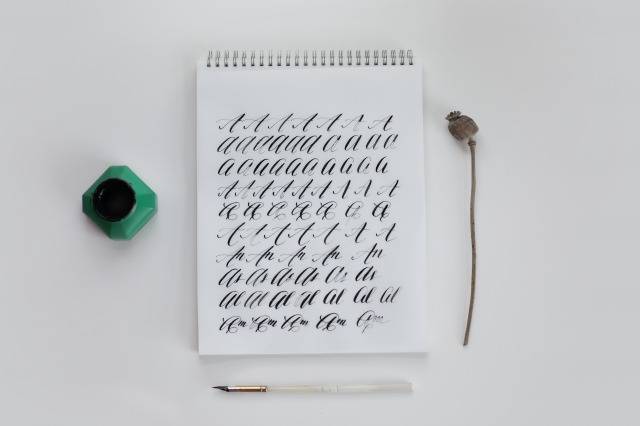 A A A A A A A
a a a a a a a a a a
a a a a a a a a a a
A A A A A A A A
A A A A A A A
A A A A A A A
An An An An An
As As As As As As
Al Al Al Al Al Al Al
Am Am Am Am